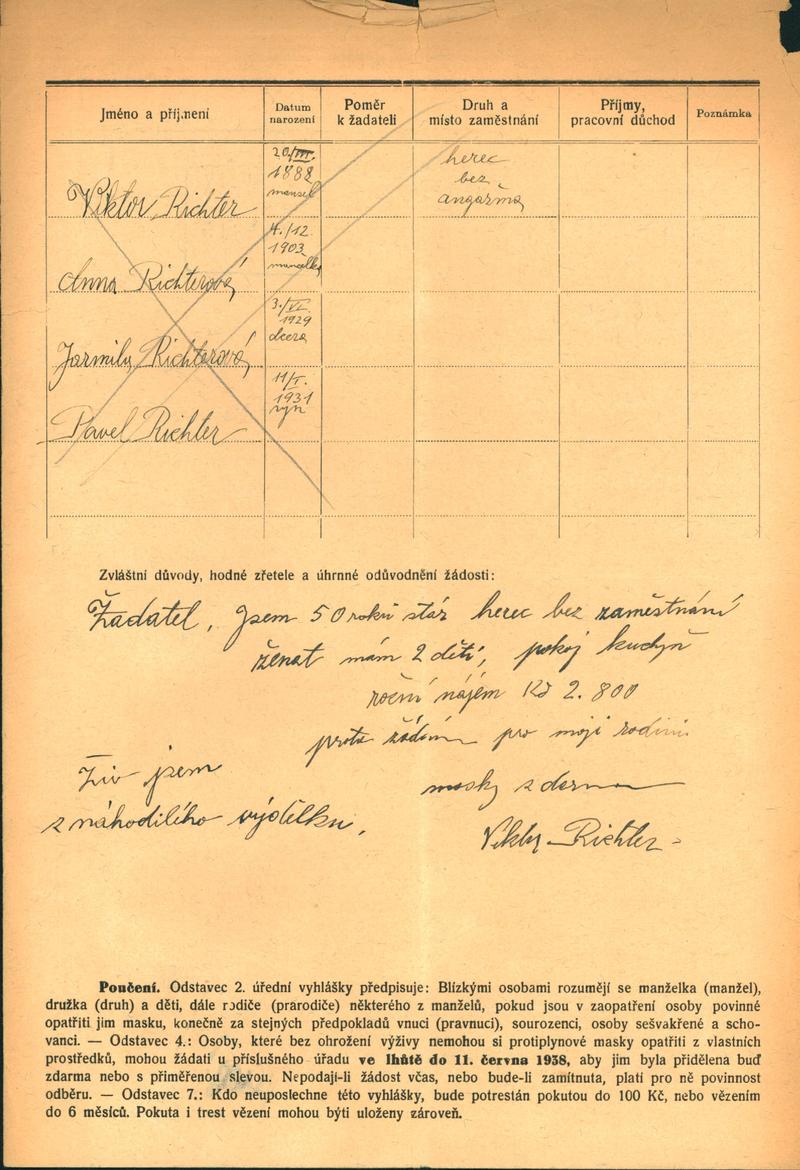 Jméno a příjmení
Datum narození
Poměr k žadateli
Druh a místo zaměstnání
Příjmy, pracovní důchod
Poznámka
20/III.
1888
manžel
Viktor Richter
herec
bez
angažmá
4./12.
1903
manželka
Anna Richterová
3./VI.
1929
dcera
Jarmila Richterová
11/I.
1931
syn
Pavel Richter
Zvláštní důvody, hodné zřetele a úhrnné odůvodnění žádosti:
Žadatel, jsem 50 roků stár herec bez zaměstnání
ženat mám 2 děti, pokoj kuchyň
roční nájem Kč 2.800
proto žádám pro moji rodinu
Živ jsem
masky zdarma
z náhodilého výdělku.
Viktor Richter
Poučení. Odstavec 2. úřední vyhlášky předpisuje: Blízkými osobami rozumějí se manželka (manžel),
družka (druh) a děti, dále rodiče (prarodiče) některého z manželů, pokud jsou v zaopatření osoby povinné
opatřiti jim masku, konečně za stejných předpokladů vnuci (pravnuci), sourozenci, osoby sešvakřené a scho-
vanci. — Odstavec 4.: Osoby, které bez ohrožení výživy nemohou si protiplynové masky opatřiti z vlastních
prostředků, mohou žádati u příslušného úřadu ve lhůtě do 11. června 1938, aby jim byla přidělena buď
zdarma nebo s přiměřenou slevou. Nepodají-li žádost včas, nebo bude-li zamítnuta, platí pro ně povinnost
odběru. — Odstavec 7.: Kdo neuposlechne této vyhlášky, bude potrestán pokutou do 100 Kč, nebo vězením
do 6 měsíců. Pokuta i trest vězení mohou býti uloženy zároveň.